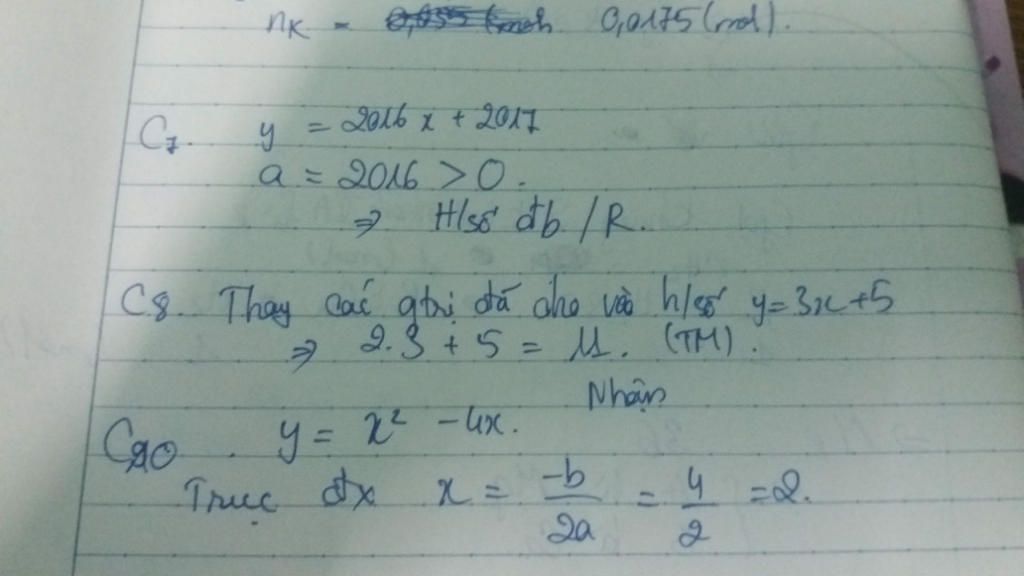 nK = 0,0175 (mol).
C7. y = 2016x + 2017
a = 2016 > 0.
⇒ H/số đb /R.
C8. Thay các gtrị đã cho vào h/số y=3x+5
⇒ 2.3 + 5 = 11. (TM).
Nhận
C10. y = x² - 4x.
Trục đx x = -b/2a = 4/2 = 2.